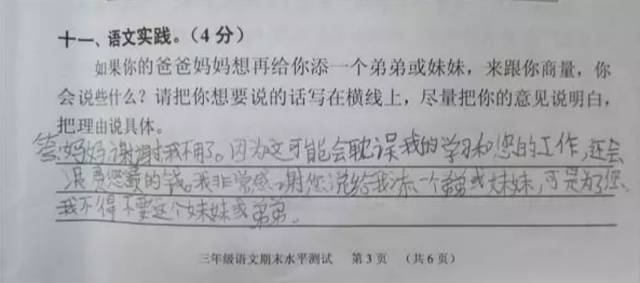 十一、语文实践。（4分）
如果你的爸爸妈妈想再给你添一个弟弟或妹妹，来跟你商量，你
会说些什么？请把你想要说的话写在横线上，尽量把你的意见说明白，
把理由说具体。
答：妈妈谢谢我不用了。因为这可能会耽误我的学习和您的工作，还会
浪费您赚的钱。我非常感谢您说给我添一个弟弟或妹妹，可是为了您，
我不得不要这个妹妹或弟弟。
三年级语文期末水平测试 第3页 （共6页）